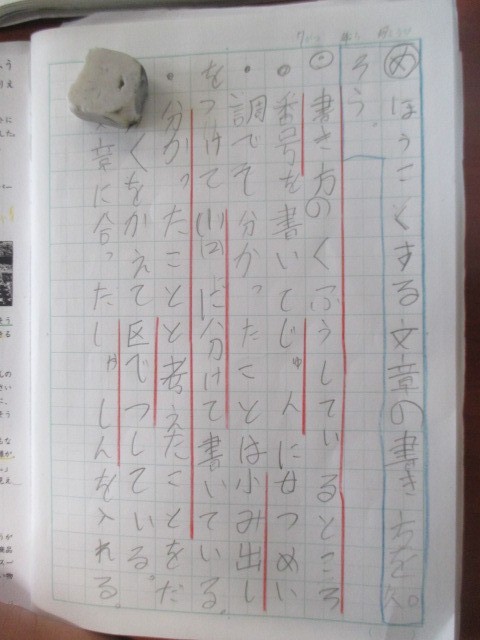 め ほうこくする文章の書き方を知
ろう。
書き方のくふうしているところ
・番号を書いてじゅんにせつめい
・調べて分かったことは小み出し
をつけて(1)(2)に分けて書いている。
・分かったことと考えたことをだ
くをかえて区べつしている。
章に合ったしゃしんを入れる。